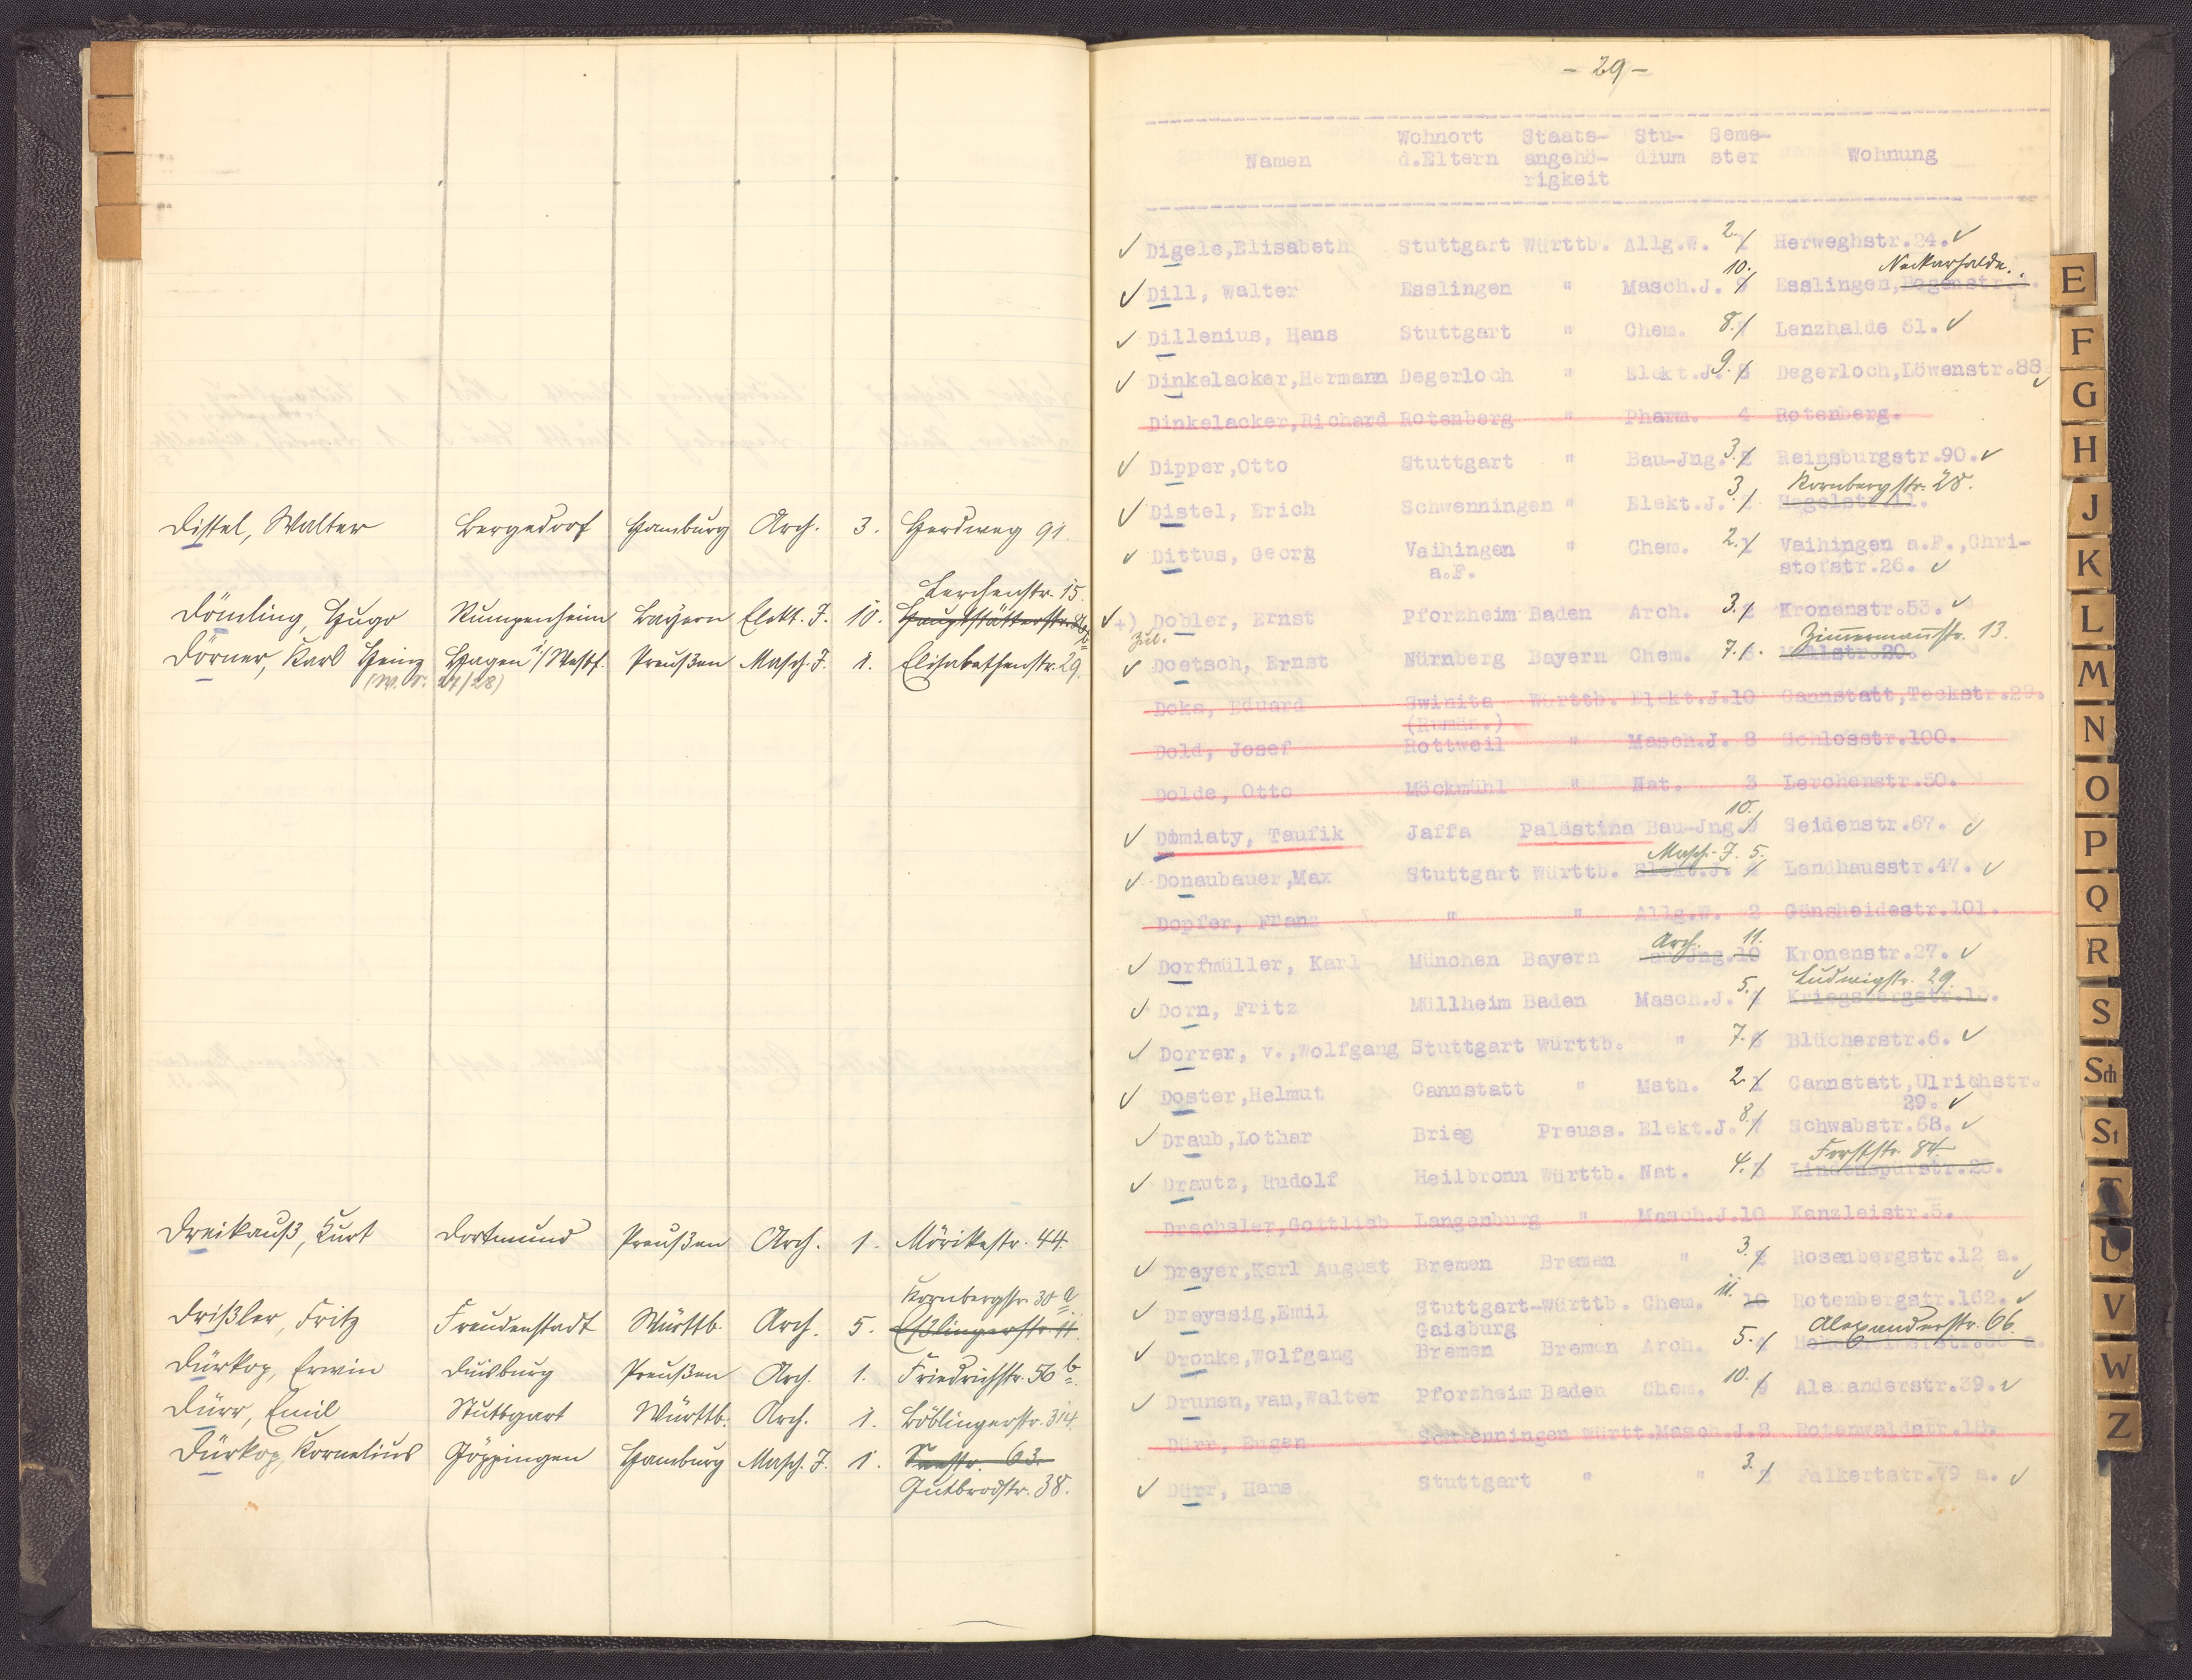 Distel, Walter Bergedorf Hamburg Arch. 3. Herdweg 91.
Lerchenstr. 15.
Dömling, Hugo Rumpenheim Bayern Elekt. J. 10. Hauptstätterstr.
Dörner, Karl Heinz Hagen i/Westf. Preußen Masch. J. 1. Elisabethenstr. 29.
(W. S. 27/28)
Dreikauß, Kurt Dortmund Preußen Arch. 1. Mörikestr. 44.
Kornbergstr. 30 a.
Drißler, Fritz Freudenstadt Württb. Arch. 5. Eßlingerstr. 11.
Dürkop, Erwin Duisburg Preußen Arch. 1. Friedrichstr. 50 b.
Dürr, Emil Stuttgart Württb. Arch. 1. Böblingerstr. 314.
Dürkop, Kornelius Göppingen Hamburg Masch. J. 1. Seestr. 63.
Gutbrodstr. 38.
- 29 -
Wohnort Staats- Stu- Seme-
Namen d.Eltern angehö- dium ster Wohnung
rigkeit
Digele,Elisabeth Stuttgart Württb. Allg.W. 2. 1 Herweghstr.24.
10. Neckarhalde.
Dill, Walter Esslingen " Masch.J. 9 Esslingen,
Dillenius, Hans Stuttgart " Chem. 8. Lenzhalde 61.
Dinkelacker,Hermann Degerloch " Elekt.J. 9. 8 Degerloch,Löwenstr.88.
Dinkelacker,Richard Rotenberg " Pharm. 4 Rotenberg.
Dipper,Otto Stuttgart " Bau-Jng. 3. 2 Reinsburgstr.90.
3. Kornbergstr. 28.
Distel, Erich Schwenningen " Elekt.J. Hegelstr.41.
Dittus, Georg Vaihingen " Chem. 2. 1 Vaihingen a.F.,Chri-
a.F. stofstr.26.
+) Dobler, Ernst Pforzheim Baden Arch. 3. 2 Kronenstr.53.
Zul. Zimmermannstr. 13.
Doetsch, Ernst Nürnberg Bayern Chem. 7. 6
Doka, Eduard Swinita Württb. Elekt.J.10 Cannstatt,Teckstr.29.
(Rumän.)
Dold, Josef Rottweil " Masch.J. 8 Schlosstr.100.
Dolde, Otto Möckmühl " Nat. 3 Lerchenstr.50.
10.
Domiaty, Taufik Jaffa Palästina Bau-Jng.9 Seidenstr.67.
Masch. J. 5.
Donaubauer,Max Stuttgart Württb. Elekt.J. 4 Landhausstr.47.
Dopfer, Franz " " Allg.W. 2 Gänsheidestr.101.
Arch. 11.
Dorfmüller, Karl München Bayern Bau-Jng.10 Kronenstr.27.
5. Ludwigstr. 29.
Dorn, Fritz Müllheim Baden Masch.J. 4 Kriegsbergstr.13.
Dorrer, v.,Wolfgang Stuttgart Württb. " 7. 6 Blücherstr.6.
Doster,Helmut Cannstatt " Math. 2. 1 Cannstatt,Ulrichstr.
29.
Draub,Lothar Brieg Preuss. Elekt.J. 8. 7 Schwabstr.68.
Forststr. 84.
Drautz, Rudolf Heilbronn Württb. Nat. 4. 3 Lindenspürstr.20.
Drechsler,Gottlieb Langenburg " Masch.J.10 Kanzleistr.5.
Dreyer,Karl August Bremen Bremen " 3. 2 Rosenbergstr.12 a.
Dreyssig,Emil Stuttgart- Württb. Chem. 11. 10 Rotenbergstr.162.
Gaisburg Alexanderstr. 66.
Dronke,Wolfgang Bremen Bremen Arch. 5. 4
Drunen,van,Walter Pforzheim Baden Chem. 10. 9 Alexanderstr.39.
Dürr, Eugen Schwenningen Württ.Masch.J.2 Rotenwaldstr.
Dürr, Hans Stuttgart " " 3. 2 Falkertstr.79 a.
E
F
G
H
J
K
L
M
N
O
P
Q
R
S
Sch
St
T
U
V
W
Z